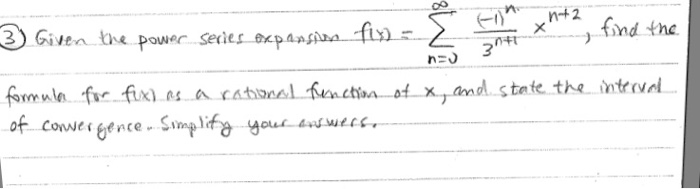 ③ Given the power series expansion f(x) = ∑_{n=0}^{∞} \frac{(-1)^n}{3^{n+1}} x^{n+2}, find the
formula for f(x) as a rational function of x, and state the interval
of convergence. Simplify your answers.